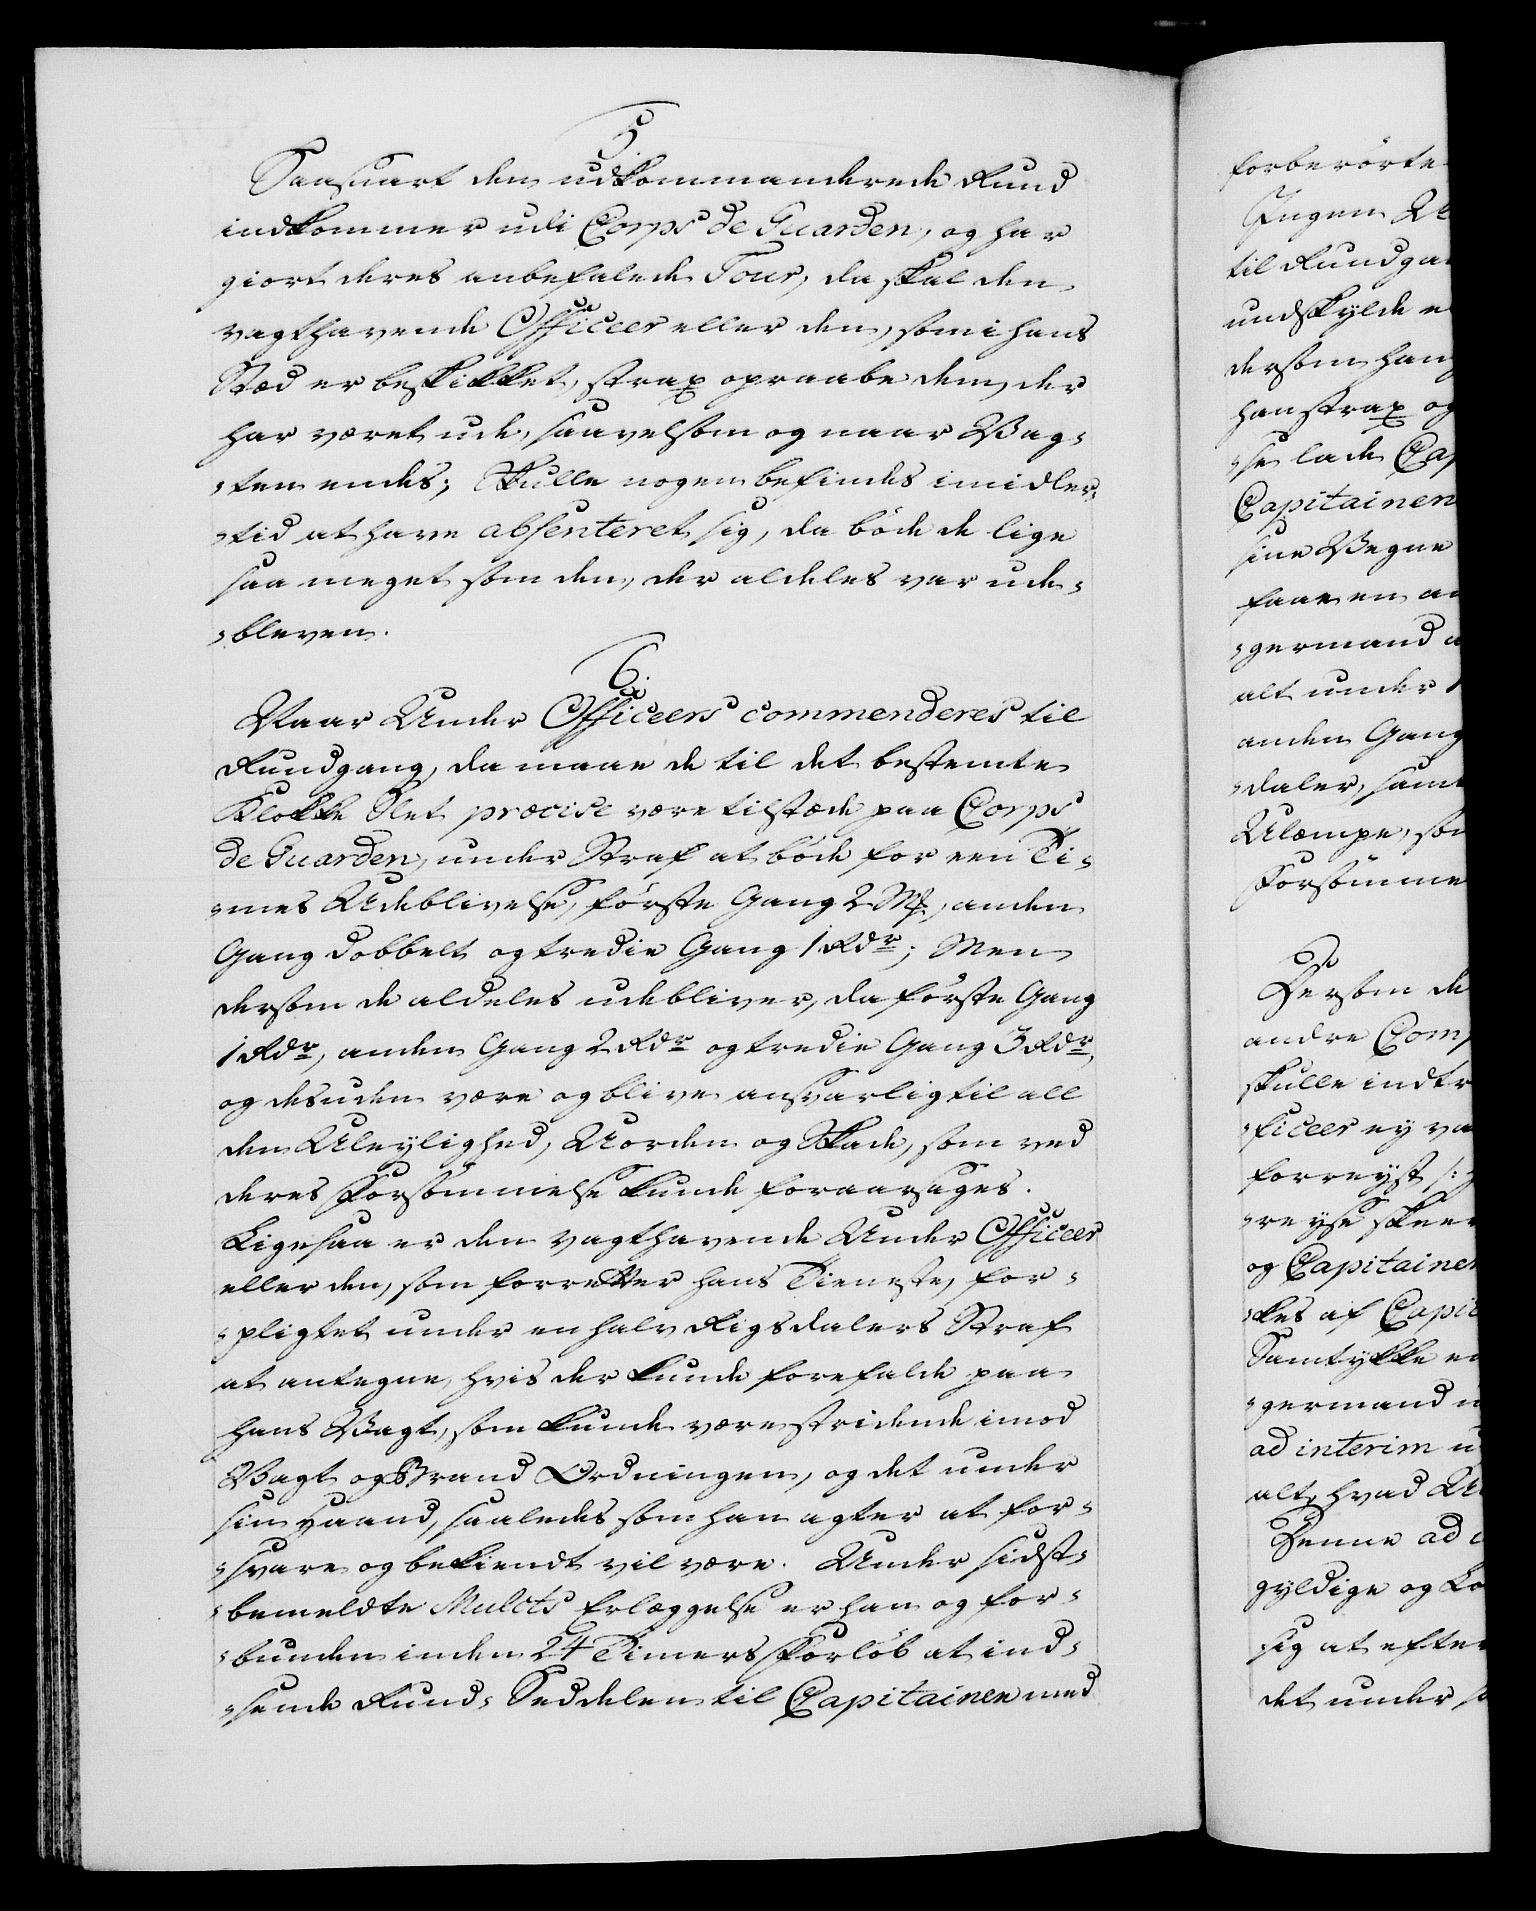 5.
Saasnart den udkommanderede Rund
indkommer udi Corps de Guarden, og har
giort deres anbefalede Tour, da skal den
vagthavende Officeer eller den, som i hans
Sted er beskikket, strax opraabe dem, der
har været ude, saavelsom og naar Vag-
-ten endes; Skulle nogen befindes imidler-
-tid at have absenteret sig, da böde de lige
saa meget som den, der aldeles var ude-
-bleven.
6.
Naar Under Officeers commenderes til
Rundgang, da maae de til det bestemte
Klokke Slet præcise være tilstæde paa Corps
de Guarden, under Straf at böde for een Ti-
-mes Udeblivelse, förste Gang 2 Mk, anden
Gang dobbelt og tredie Gang 1 Rdr; Men
dersom de aldeles udebliver, da förste Gang
1 Rdr, anden Gang 2 Rdr og tredie Gang 3 Rdr,
og desuden være og blive ansvarlig til all
den Uleylighed, Uorden og Skade, som ved
deres Forsömmelse kunde foraarsages.
Ligesaa er den vagthavende Under Officeer
eller den, som forretter hans Tieneste, for-
-pligtet under en halv Rigsdalers Straf
at antegne, hvis der kunde forefalde paa
hans Vagt, som kunde være stridende imod
Vagt og Brand Ordningen, og det under
sin Haand, saaledes som han agter at for-
-svare og bekiendt vil være. Under sidst-
-bemeldte Mulcts Erlæggelse er han og for-
-bunden inden 24 Timers Forlöb at ind-
-sende Rund-Seddelen til Capitainen med
forberörte
Ingen
til Rundga
undskylde
dersom han
han strax og
-se lade Cap
Capitainen
sine Vegne
faae en
-germand
alt under
anden Gang
-daler, samt
Ulæmpe, som
Forsömme
7.
Dersom de
andre Comp
skulle indtr
-ficeer ey va
forreyst
-reyse skeer
og Capitainen
-kes af Capit
Samtykke
-germand
ad interim
alt, hvad
Denne ad
gyldige og
sig at efter
det under